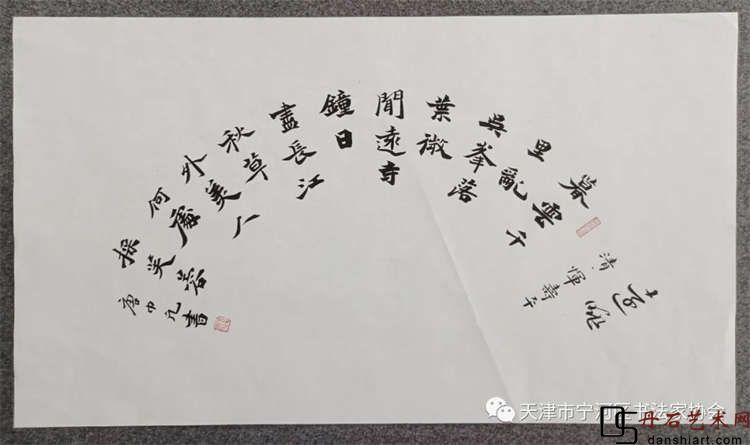 遠眺
清惲壽平
暮雲千
里亂
吳峯落
葉微
聞遠寺
鐘日
盡長江
秋草
外美人
何處
採芙蓉
唐書
天津市宁河区书法家协会
丹石艺术网
danshiart.com